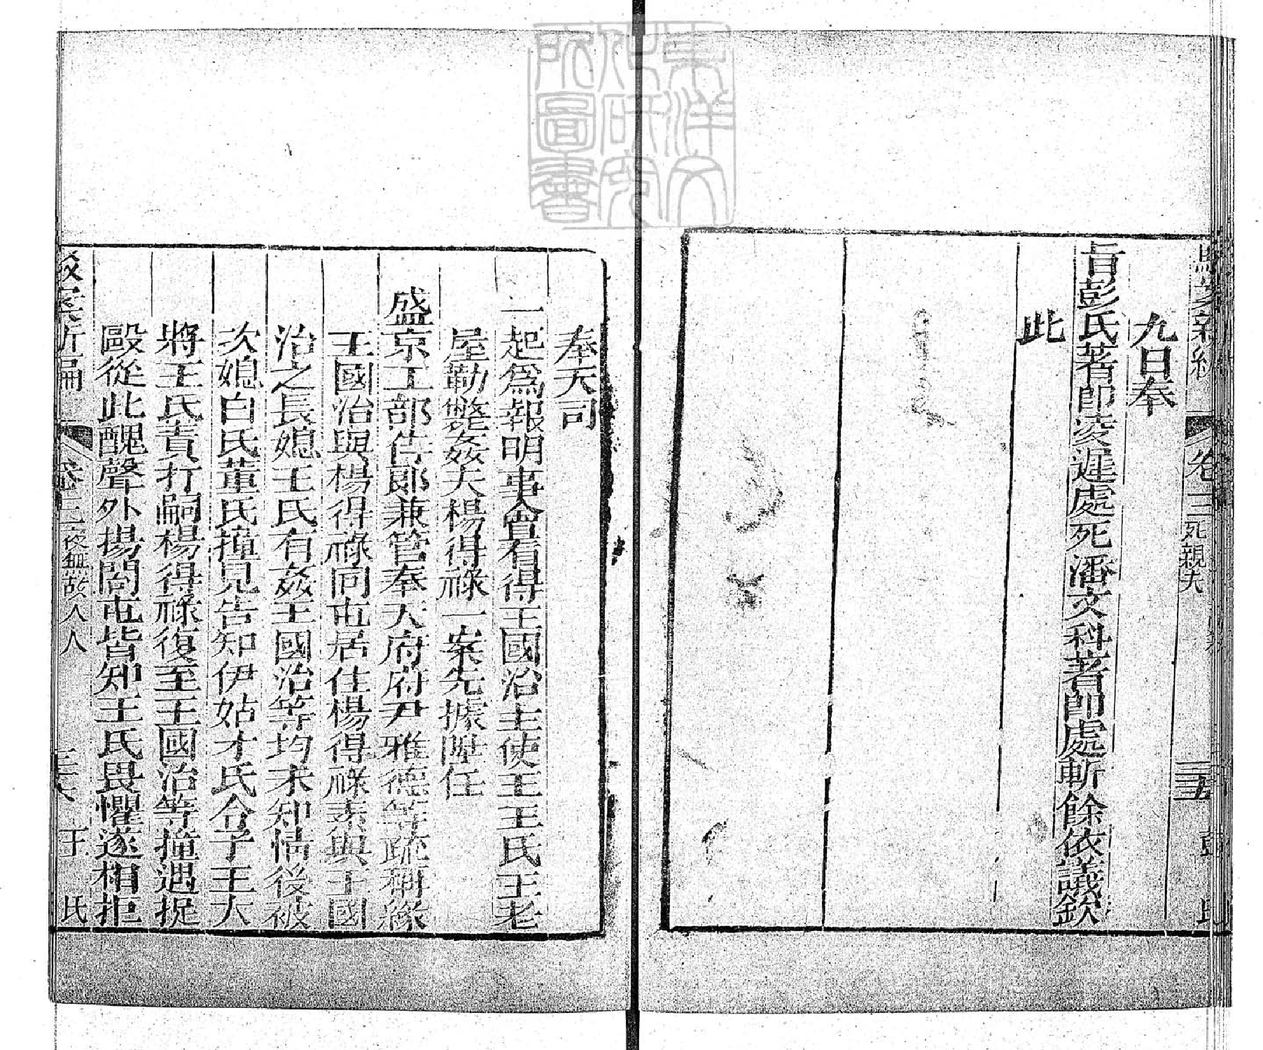 九日奉
旨彭氏著即凌遲處死潘文科著即處斬餘依議欽
此
奉天司
一起爲報明事會看得王國治主使王王氏王老
屋勒斃姦夫楊得祿一案先據陞任
盛京工部侍郎兼管奉天府府尹雅德等疏稱緣
王國治與楊得祿同屯居住楊得祿素與王國
治之長媳王氏有姦王國治等均未知情後被
次媳白氏董氏撞見告知伊姑才氏令子王大
將王氏責打嗣楊得祿復至王國治等撞遇捉
毆從此醜聲外揚闔屯皆知王氏畏懼遂相拒
駁案新編
卷三